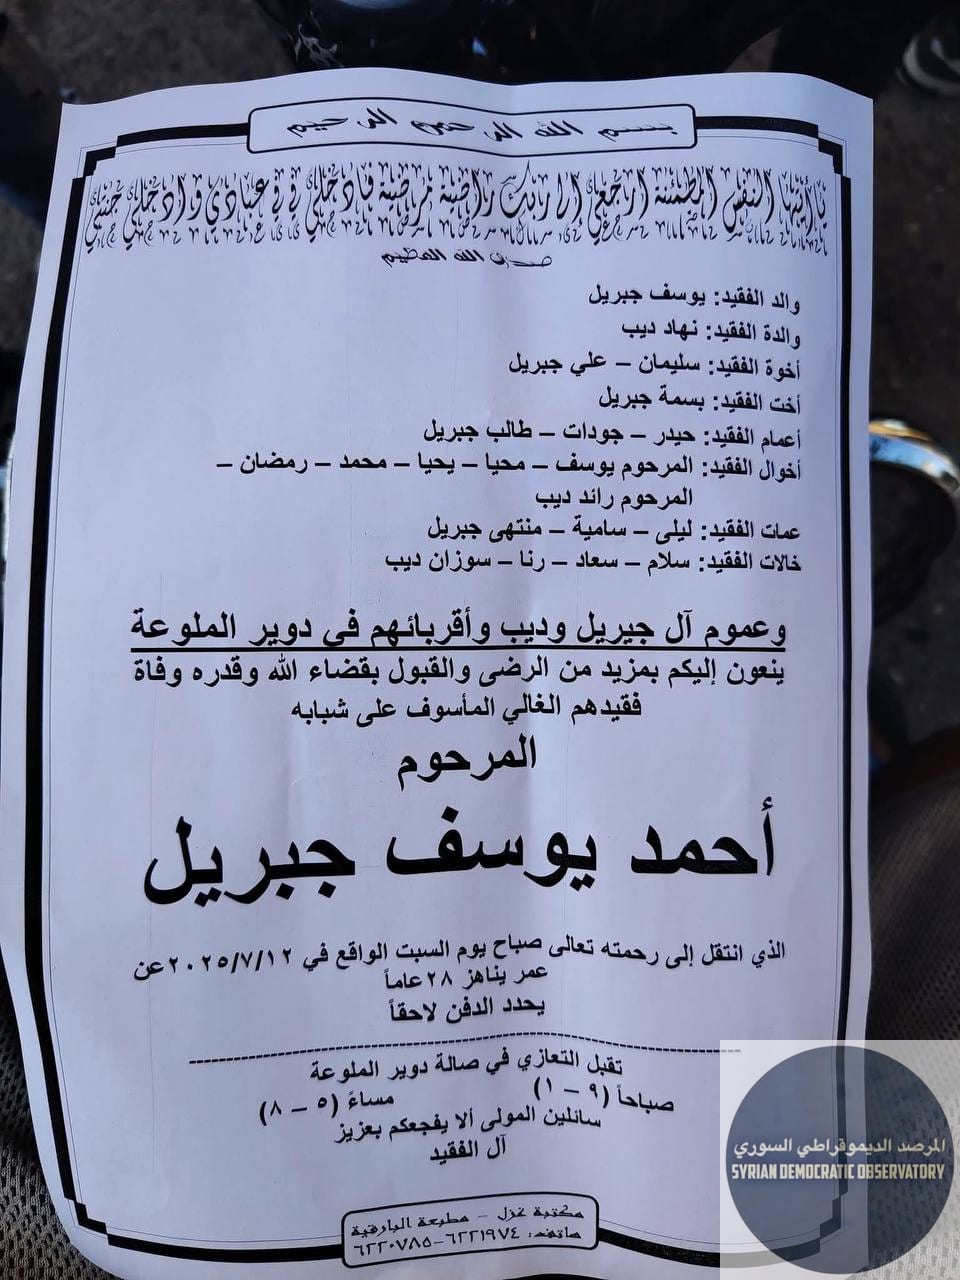 بسم الله الرحمن الرحيم
يا أيتها النفس المطمئنة ارجعي إلى ربك راضية مرضية فادخلي في عبادي وادخلي جنتي
صدق الله العظيم
والد الفقيد: يوسف جبريل
والدة الفقيد: نهاد ديب
أخوة الفقيد: سليمان – علي جبريل
أخت الفقيد: بسمة جبريل
أعمام الفقيد: حيدر – جودات – طالب جبريل
أخوال الفقيد: المرحوم يوسف – محيا – يحيا – محمد – رمضان –
المرحوم رائد ديب
عمات الفقيد: ليلى – سامية – منتهى جبريل
خالات الفقيد: سلام – سعاد – رنا – سوزان ديب
وعموم آل جبريل وديب وأقربائهم في دوير الملوعة
ينعون إليكم بمزيد من الرضى والقبول بقضاء الله وقدره وفاة
فقيدهم الغالي المأسوف على شبابه
المرحوم
أحمد يوسف جبريل
الذي انتقل إلى رحمته تعالى صباح يوم السبت الواقع في ٢٠٢٥/٧/١٢عن
عمر يناهز ٢٨عاماً
يحدد الدفن لاحقاً
تقبل التعازي في صالة دوير الملوعة
صباحاً (٩ – ١) مساءً (٥ – ٨)
سائلين المولى ألا يفجعكم بعزيز
آل الفقيد
مكتبة غزل – مطبعة اليازفية
هاتف: ٦٢٢١٩٧٤-٦٢٢٠٧٨٥
المرصد الديموقراطي السوري
SYRIAN DEMOCRATIC OBSERVATORY